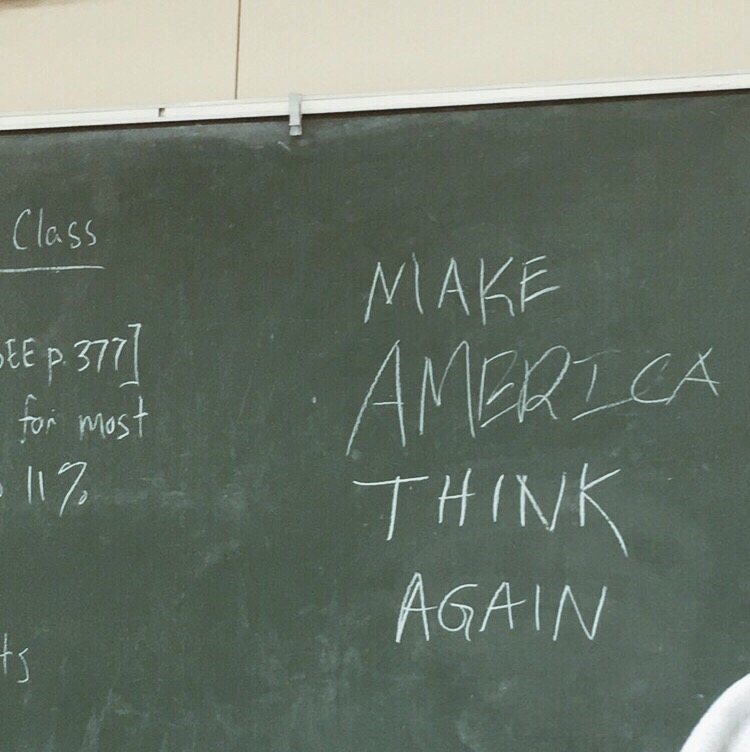 Class
SEE p. 377]
for most
11%
ts
MAKE
AMERICA
THINK
AGAIN